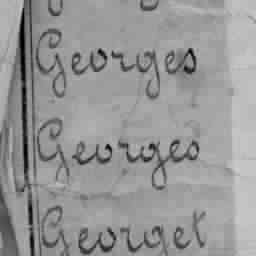 Georges
Georges
Georget